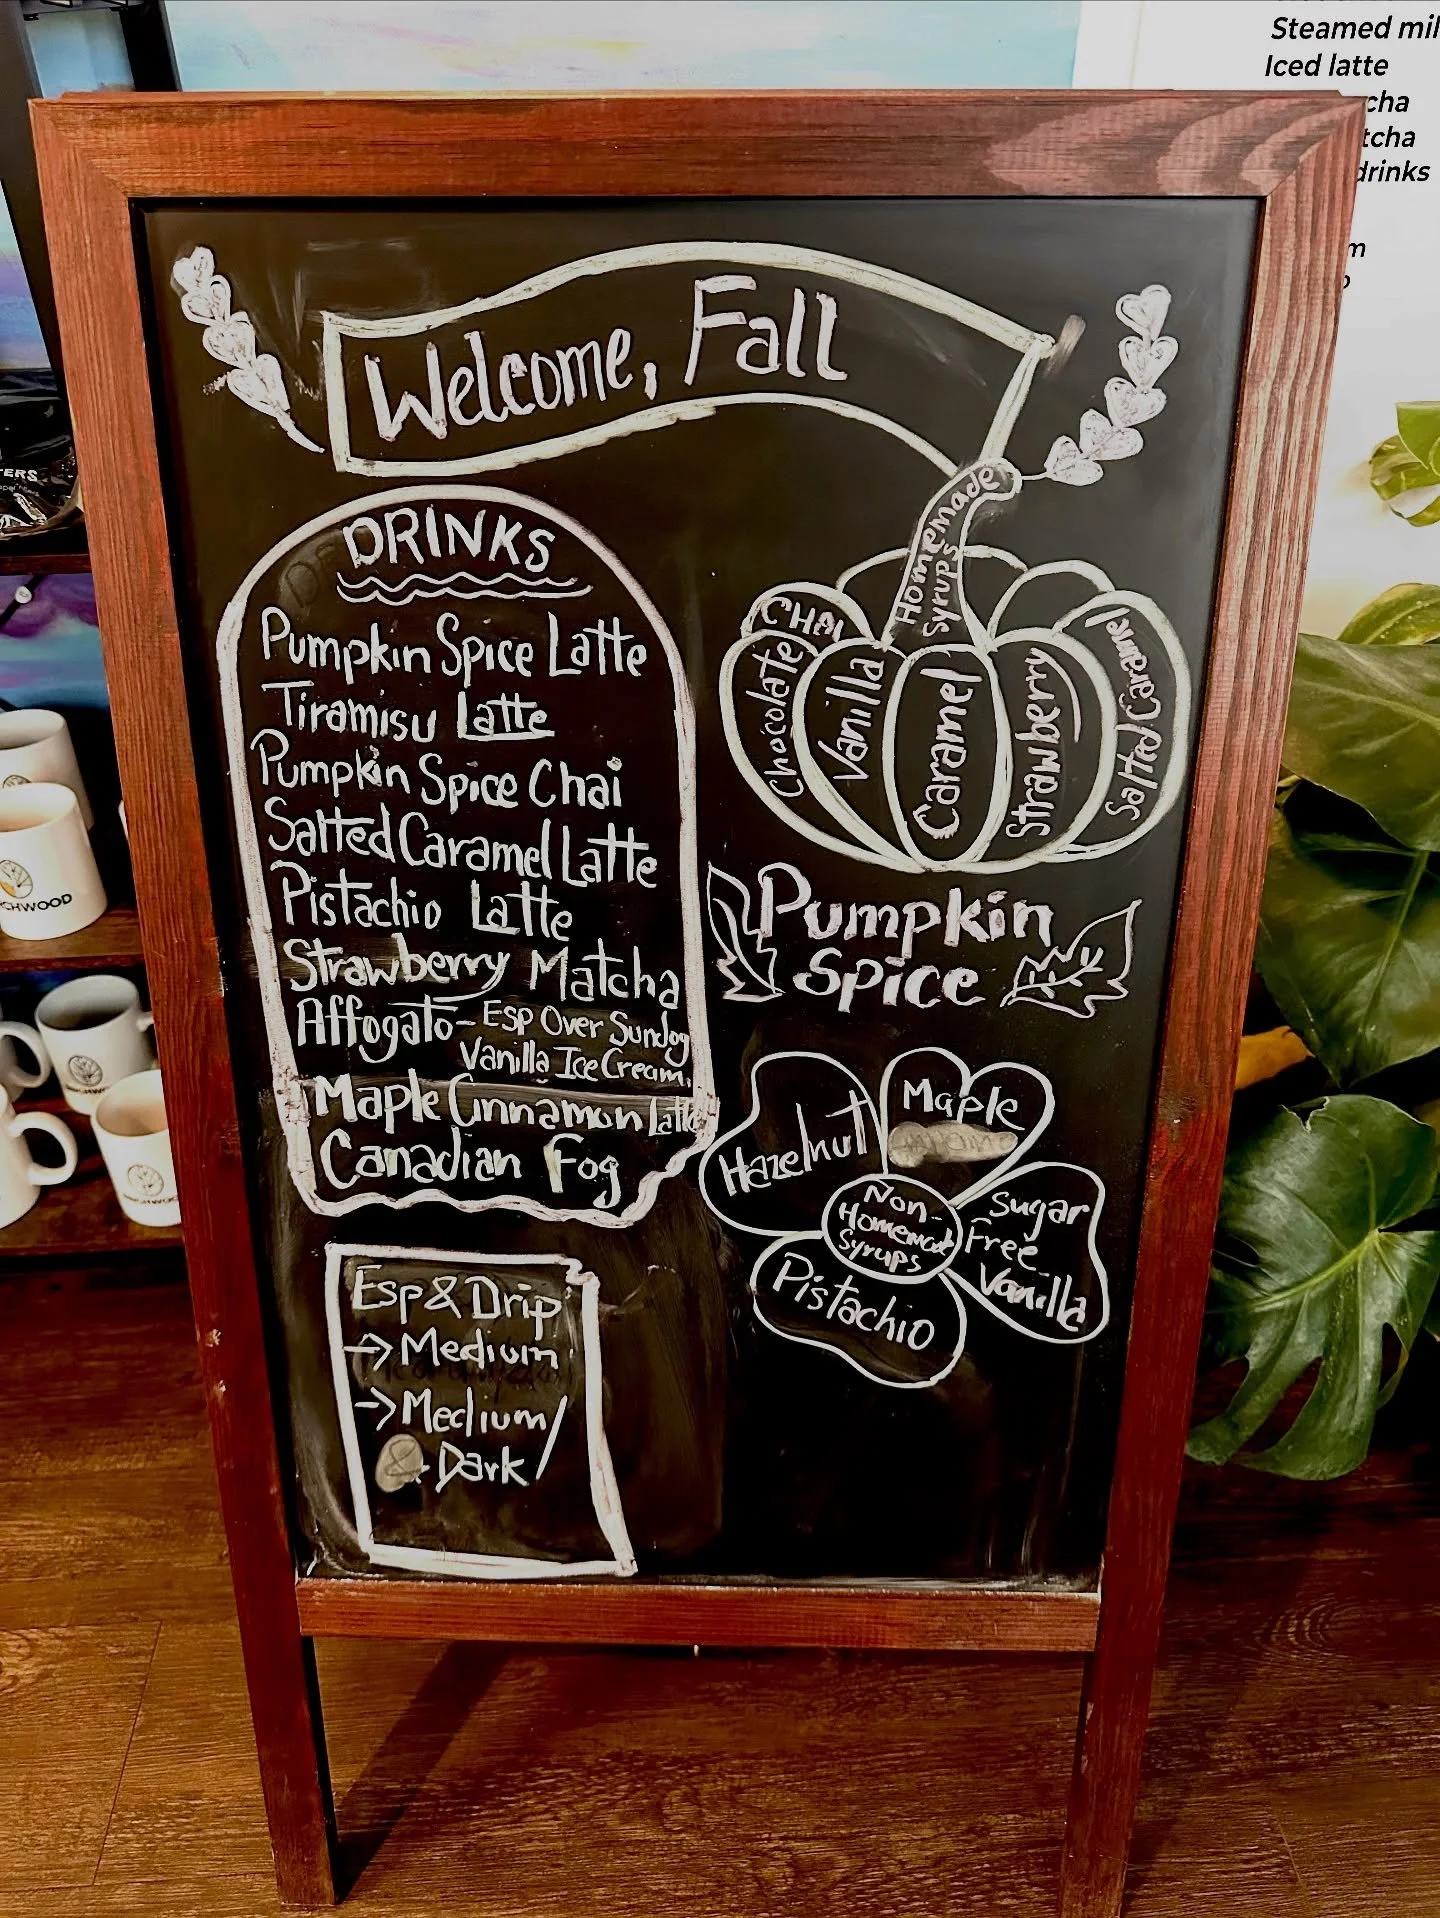 Steamed mil
Iced latte
cha
tcha
drinks
m
Welcome, Fall
DRINKS
Pumpkin Spice Latte
Tiramisu Latte
Pumpkin Spice Chai
Salted Caramel Latte
Pistachio Latte
Strawberry Matcha
Affogato - Esp Over Sundog
Vanilla Ice Cream
Maple Cinnamon Latte
Canadian Fog
Esp & Drip
→ Medium
→ Medium/
Dark
Homemade
Syrups
CHAI
Chocolate
Vanilla
Caramel
Strawberry
Salted Caramel
Pumpkin
Spice
Hazelnut
Maple
Non-
Homemade
Syrups
Sugar
Free
Vanilla
Pistachio
TERS
RCHWOOD